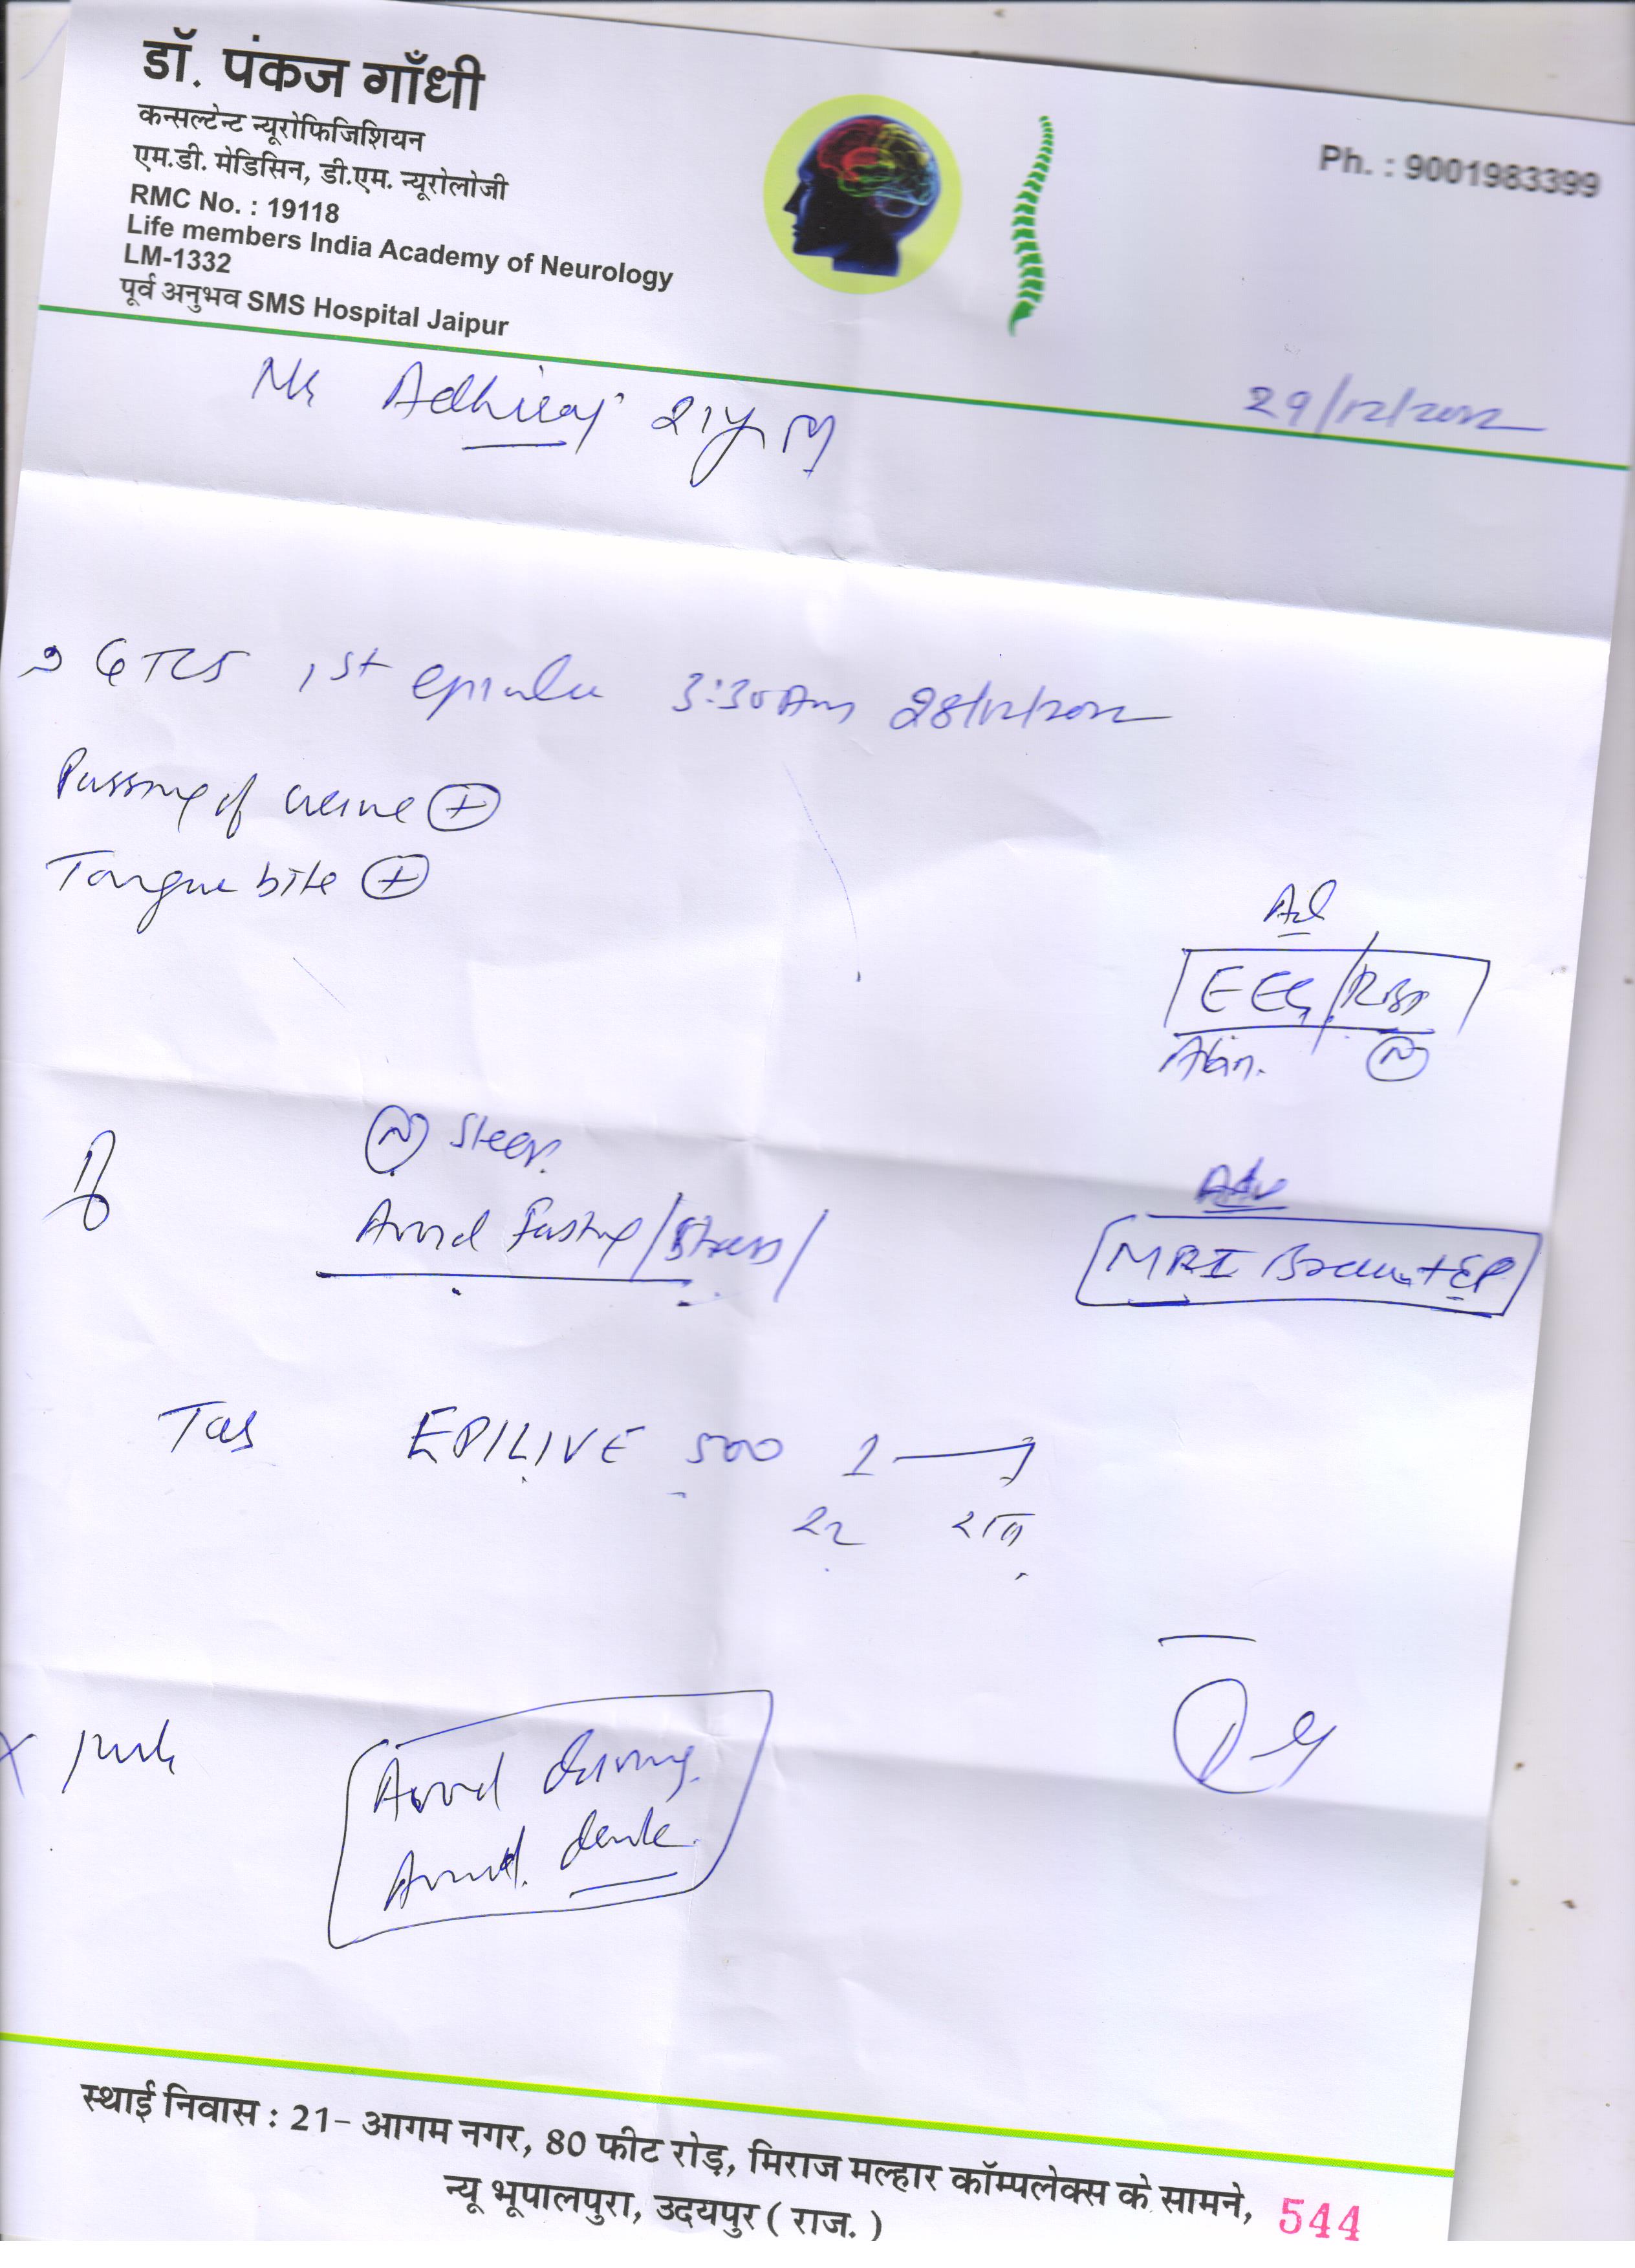 डॉ. पंकज गाँधी
कन्सल्टेन्ट न्यूरोफिजिशियन
एम.डी. मेडिसिन, डी.एम. न्यूरोलोजी
RMC No. : 19118
Life members India Academy of Neurology
LM-1332
पूर्व अनुभव SMS Hospital Jaipur
Ph. : 9001983399
29/12/2022
Mr Adhiraj 21y M
GTCS 1st episode 3:30 Am 28/12/2022
Passing of urine +
Tongue bite +
EEG/RBS
Abn. N
N Sleep.
Avoid fasting/Stress/
Adv
MRI Brain + EP
Tab EPILIVE 500 1 — 1
Avoid driving.
Avoid.
स्थाई निवास : 21- आगम नगर, 80 फीट रोड़, मिराज मल्हार कॉम्पलेक्स के सामने,
न्यू भूपालपुरा, उदयपुर ( राज. )
544